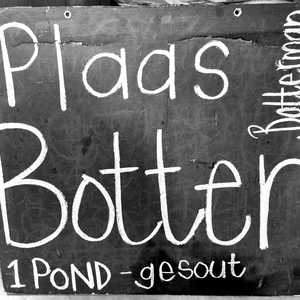 Plaas
Botter
1 POND - gesout
Botterman